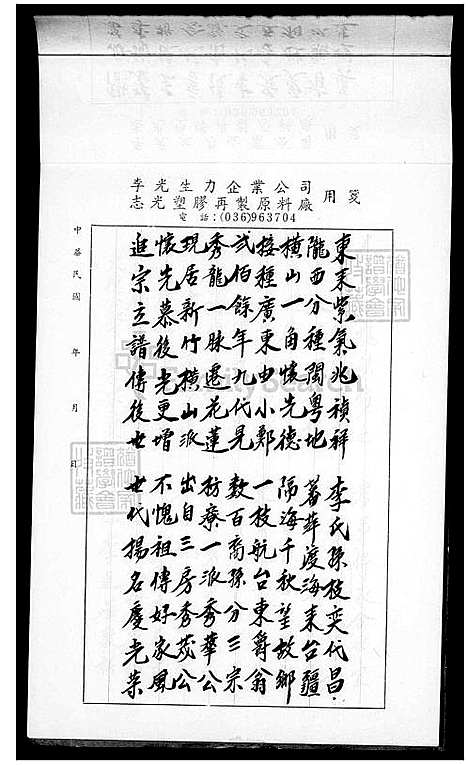 李光生力企業公司
志光塑膠再製原料廠
用箋
電話:(036)963704
東来紫氣兆禎祥 李氏孫枝奕代昌
隴西分種閩粤地 蕃萍渡海来台疆
橫山一角懷先德 隔海千秋望故鄉
接種廣東由小鄭 一枝航台東爵翁
弍伯餘年九代是 數百裔孫分三宗
秀龍一脉遷花蓮 枋寮一派秀華公
現居新竹橫山派 出自三房秀茂公
懷先慕後光更增 不愧祖傳好家風
追宗立譜傳後世 世代揚名慶光荣
中華民國 年 月 日